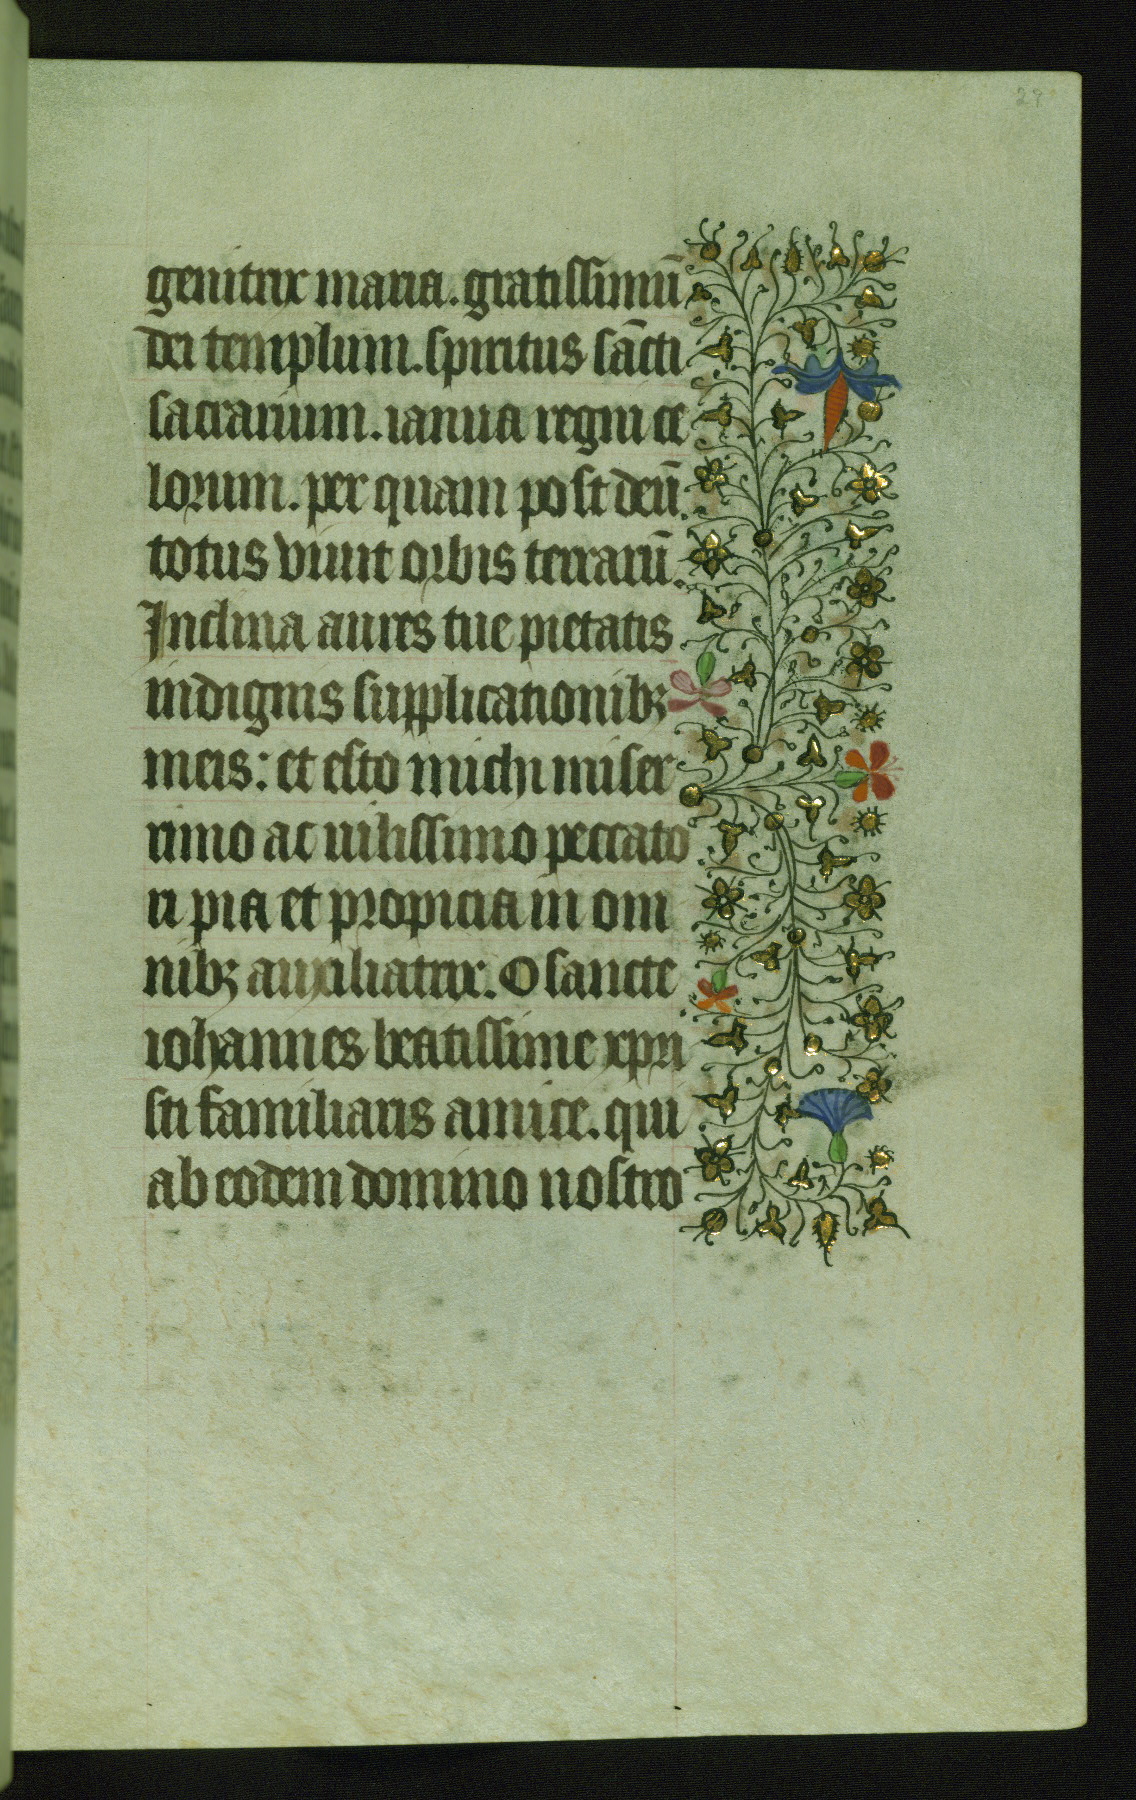 genitrix maria. gratissimū
dei templum. spiritus sācti
sacrarium. ianua regni ce
lorum. per quam post deū
totus viuit orbis terrarū
Inclina aures tue pietatis
indignis supplicationibꝫ
meis: et esto michi miser
rimo ac uilissimo peccato
ri pia et propicia in om
nibꝫ auxiliatrix. O sancte
iohannes beatissime xpri
sti familiaris amice. qui
ab eodem domino nostro